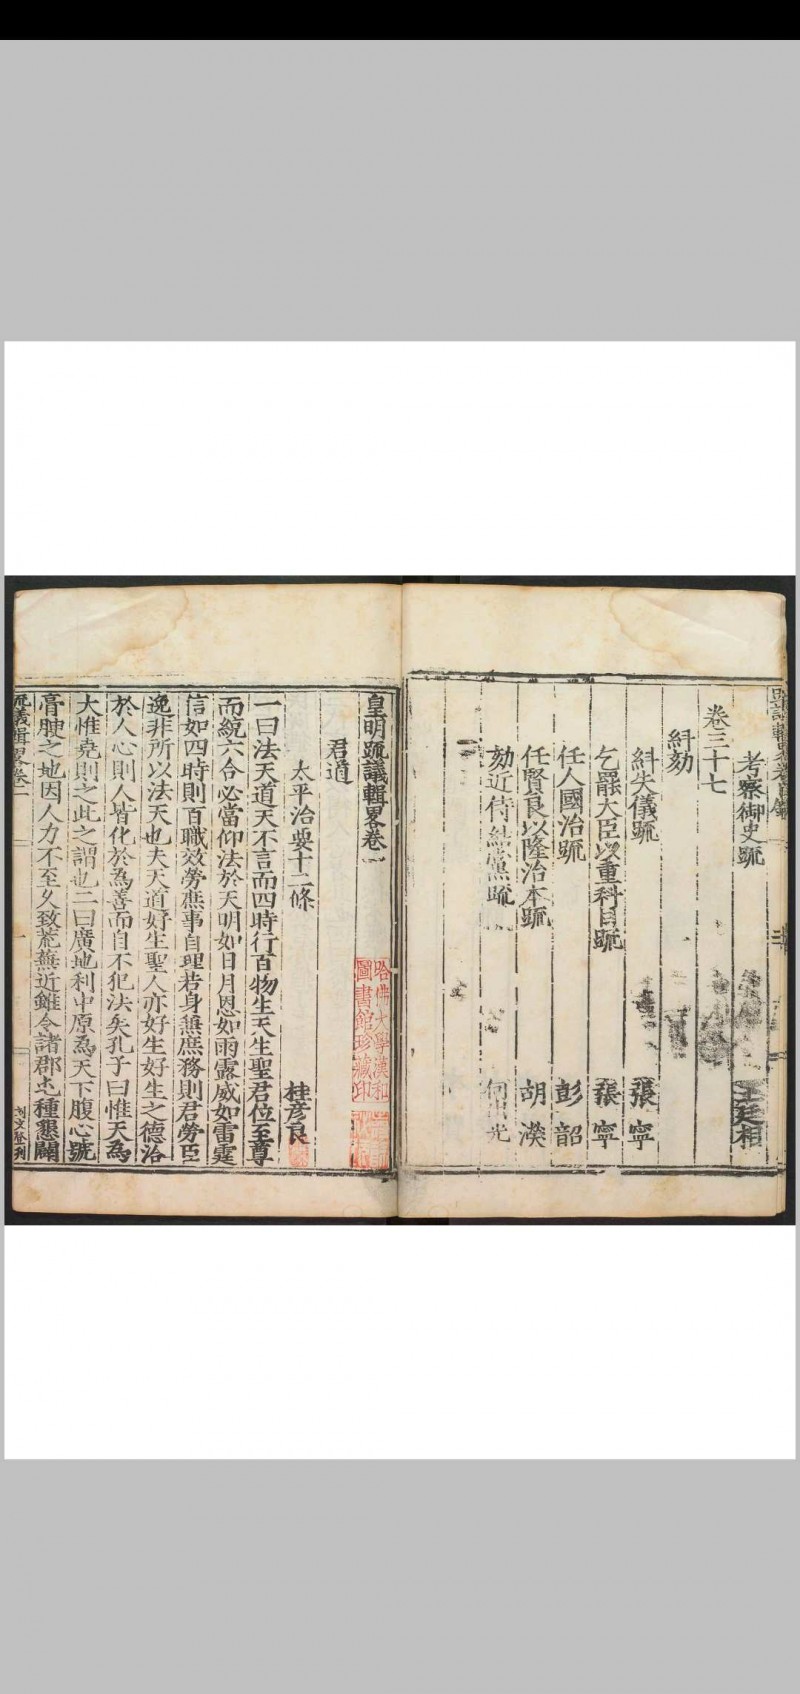 考察御史疏 王廷相
卷三十七
糾劾
糾失儀疏 張寧
乞罷大臣以重科目疏 張寧
任人圖治疏 彭韶
任賢良以隆治本疏 胡濙
劾近侍結黨疏
皇明疏議輯畧卷一
君道
太平治要十二條 桂彥良
一曰法天道天不言而四時行百物生天生聖君位至尊
而統六合必當仰法於天明如日月恩如雨露威如雷霆
信如四時則百職效勞庶事自理若身兼庶務則君勞臣
逸非所以法天也夫天道好生聖人亦好生好生之德洽
於人心則人皆化於為善而自不犯法矣孔子曰惟天為
大惟堯則之此之謂也二曰廣地利中原為天下腹心號
膏腴之地因人力不至久致荒蕪近雖令諸郡屯種懇闢
疏議輯畧卷一
一
哈佛大學漢和
圖書館珍藏印